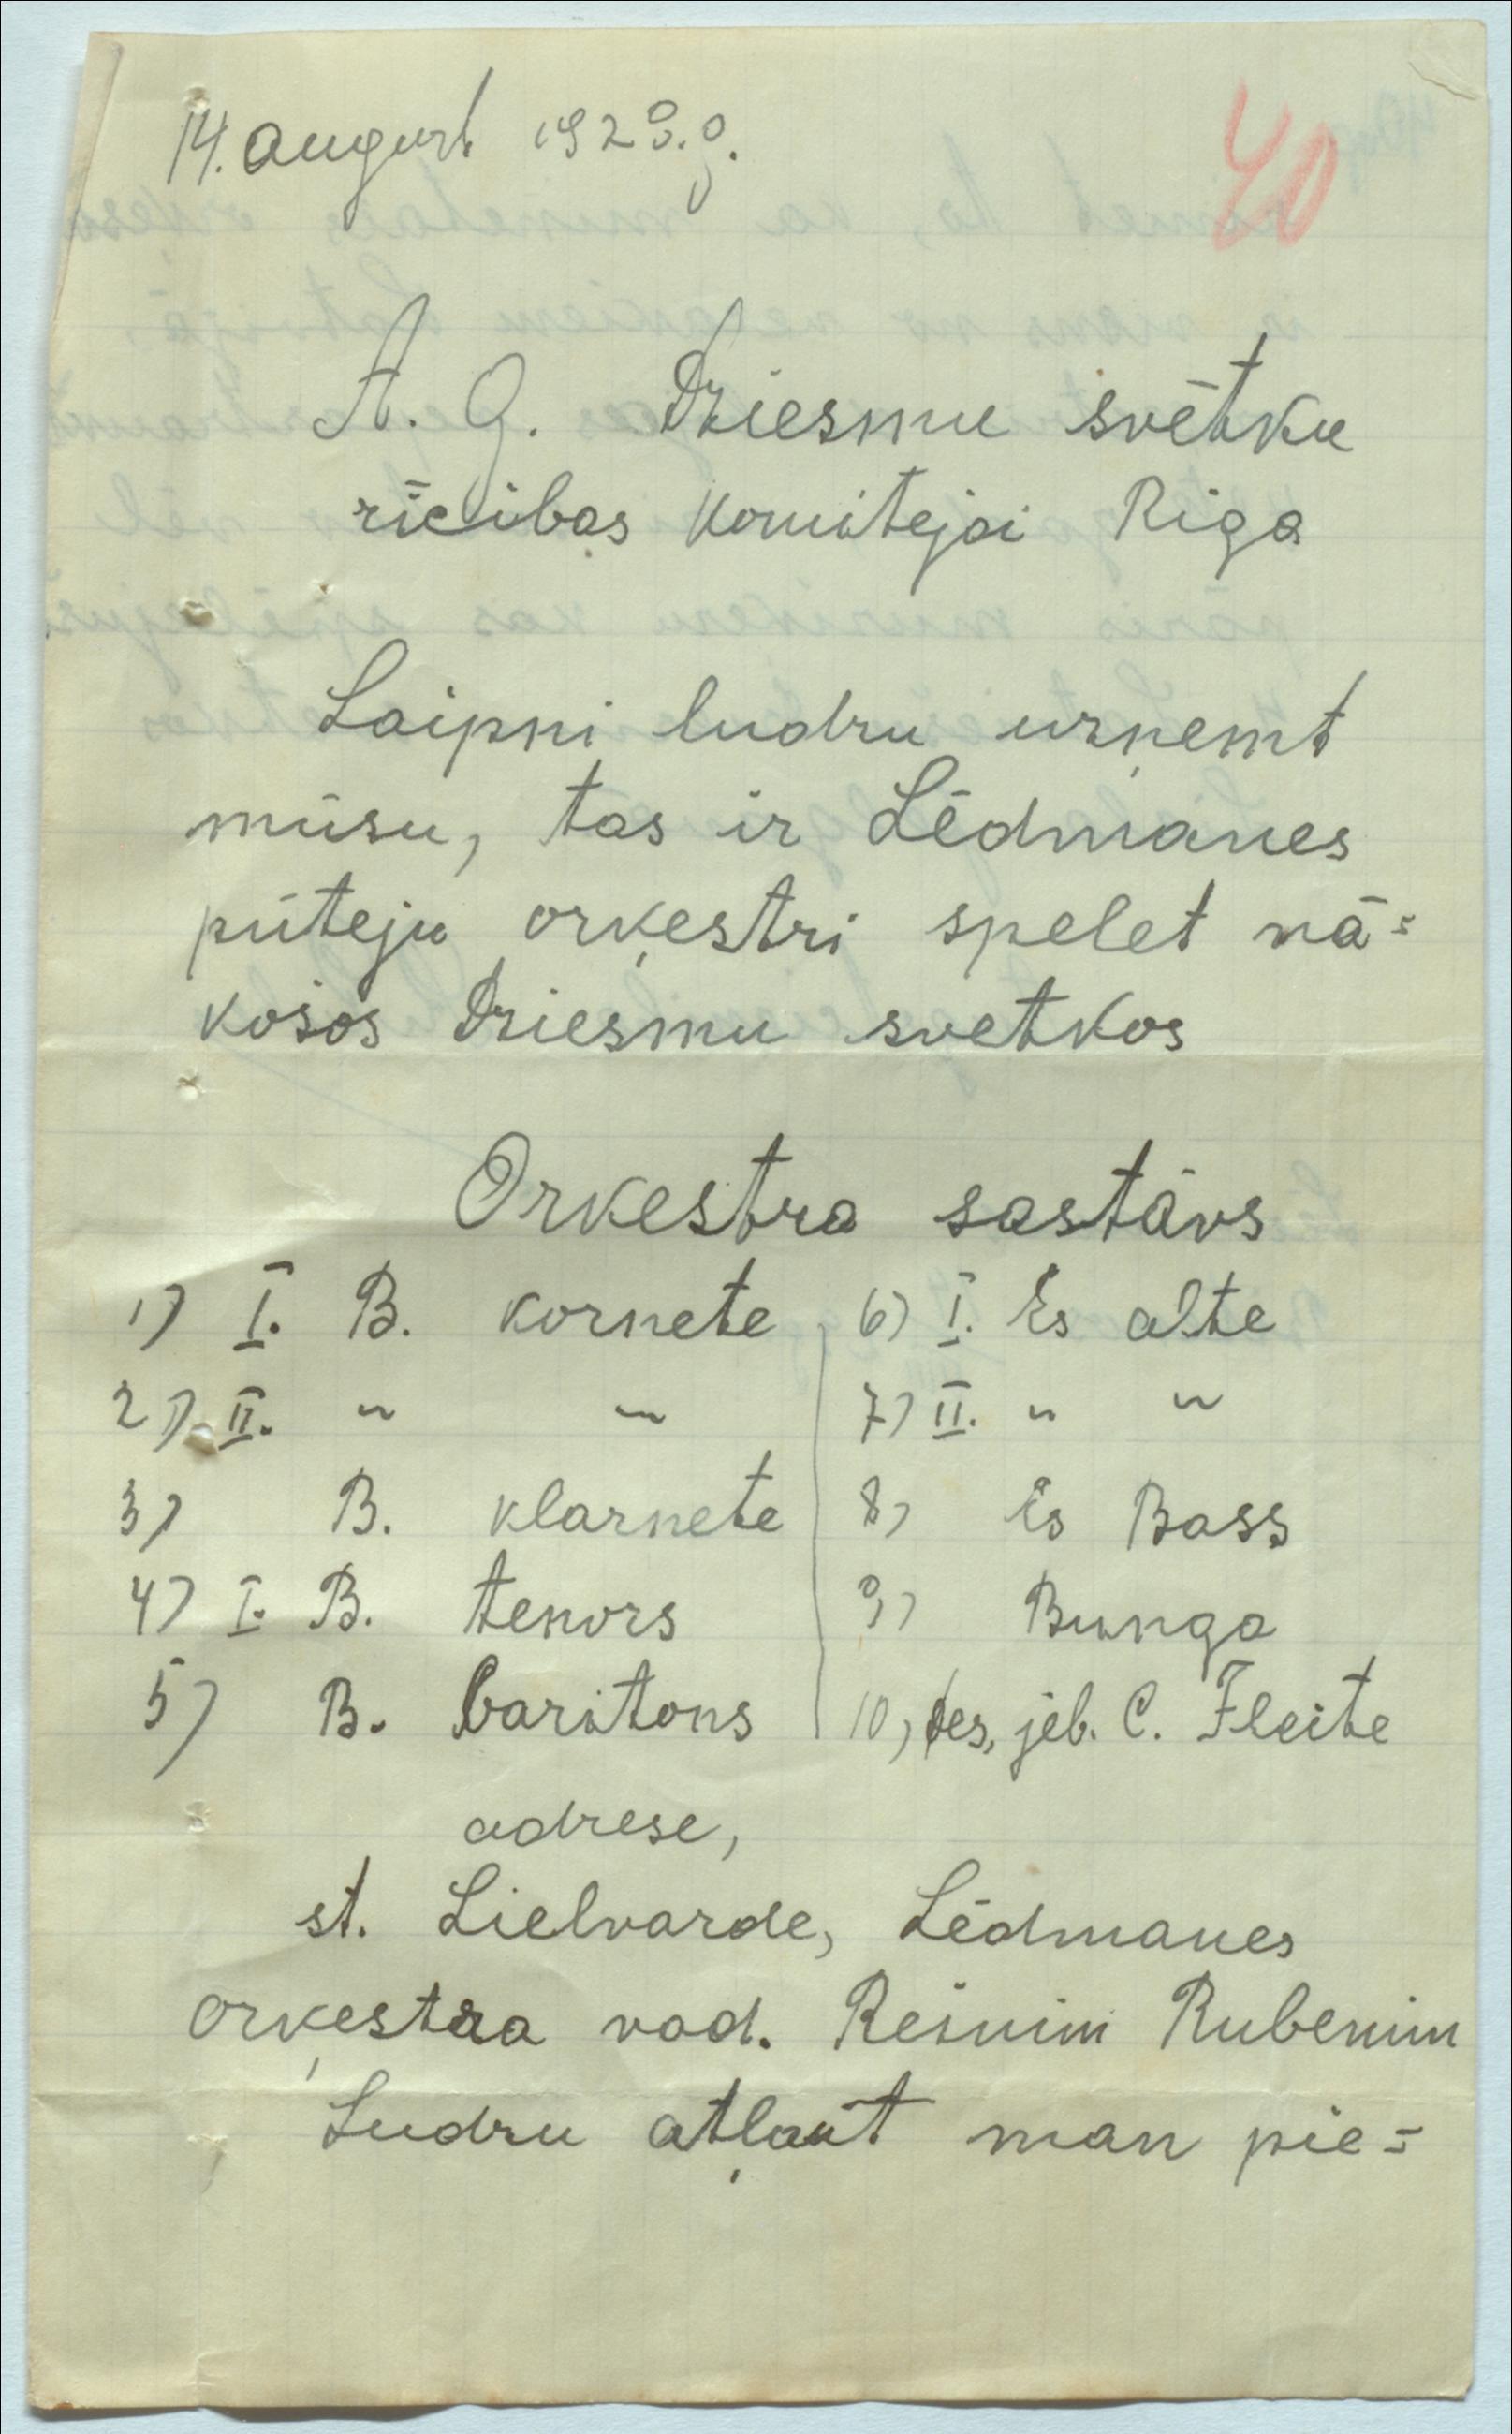 14. august 1925.g.
40
A. G. Dziesmu svētku
rīcibas komitejai Riga
Laipni ludzu uzņemt
mūsu, tas ir Lēdmanes
pūteju orķestri spelet nā=
košos Dziesmu svetkos
Orkestra sastāvs
1) I. B. kornete 6) I. Es alte
2) II. " " 7) II. " "
3) B. klarnete 8) Es Bass
4) I. B. tenors 9) Bunga
5) B. baritons 10) Des, jeb. C. Fleite
adrese,
st. Lielvarde, Lēdmanes
orķestra vad. Reinim Rubenim
Ludzu atļaut man pie=